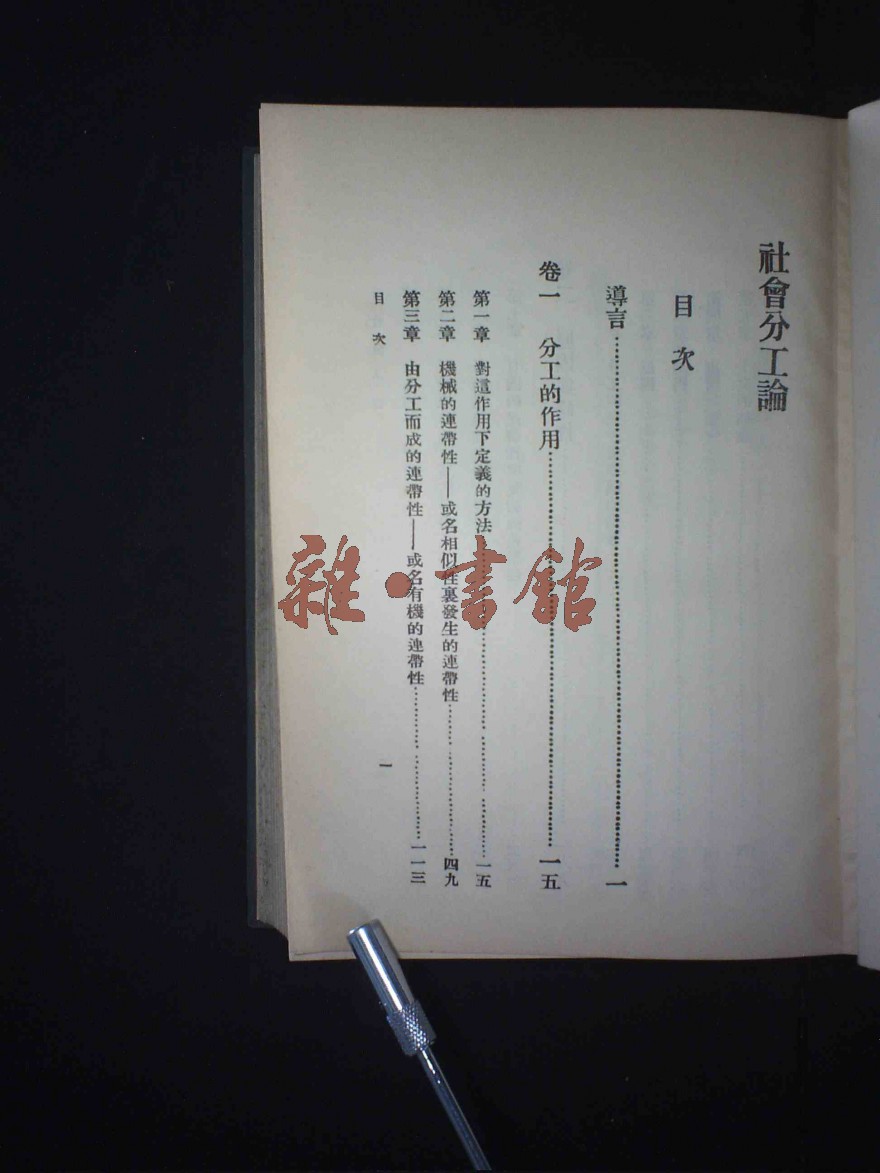 社會分工論
目次
導言……一
卷一 分工的作用……一五
第一章 對這作用下定義的方法……一五
第二章 機械的連帶性——或名相似性裏發生的連帶性……四九
第三章 由分工而成的連帶性——或名有機的連帶性……一一三
目次
一
雜·書館